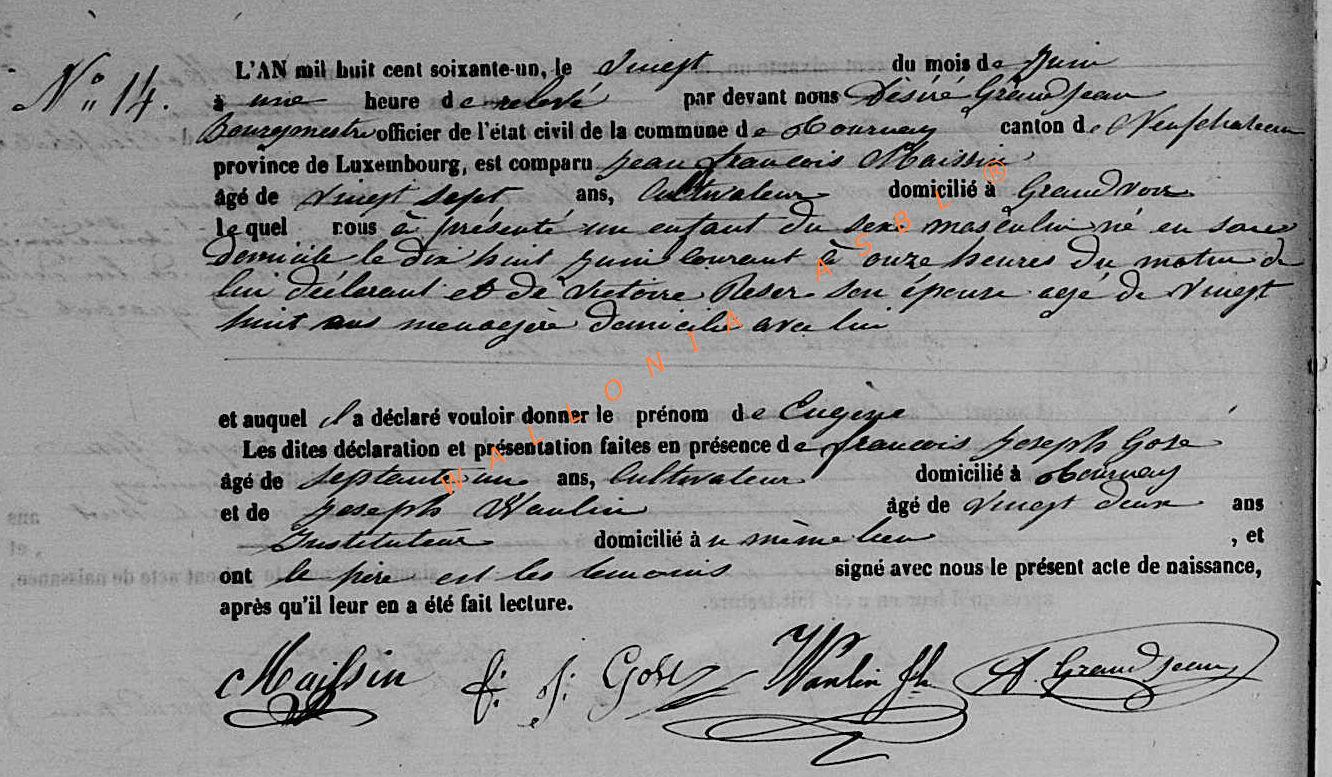 N° 14.
L'AN mil huit cent soixante-un, le Vingt du mois de Juin
à une heure de relevé par devant nous Désiré Grandjean
Bourgmestre officier de l'état civil de la commune de Tournay canton de Neufchateau
province de Luxembourg, est comparu Jean françois Maissin
âgé de vingt sept ans, Cultivateur domicilié à Grandvoir
lequel nous à présenté un enfant du sexe masculin né en son
domicile le dix huit juin courant à onze heures du matin de
lui déclarant et de Victoire Reser son épouse agé de Vingt
huit ans menagère domicilié avec lui
et auquel il a déclaré vouloir donner le prénom de Eugène
Les dites déclaration et présentation faites en présence de françois Joseph Gose
âgé de septante un ans, Cultivateur domicilié à Tournay
et de Joseph Wanlin âgé de Vingt deux ans
Instituteur domicilié à u même lieu , et
ont le père est les temoins signé avec nous le présent acte de naissance,
après qu'il leur en a été fait lecture.
Maissin f. J. Gose Wanlin Jh D. Grandjean
WALLONIA ASBL ®